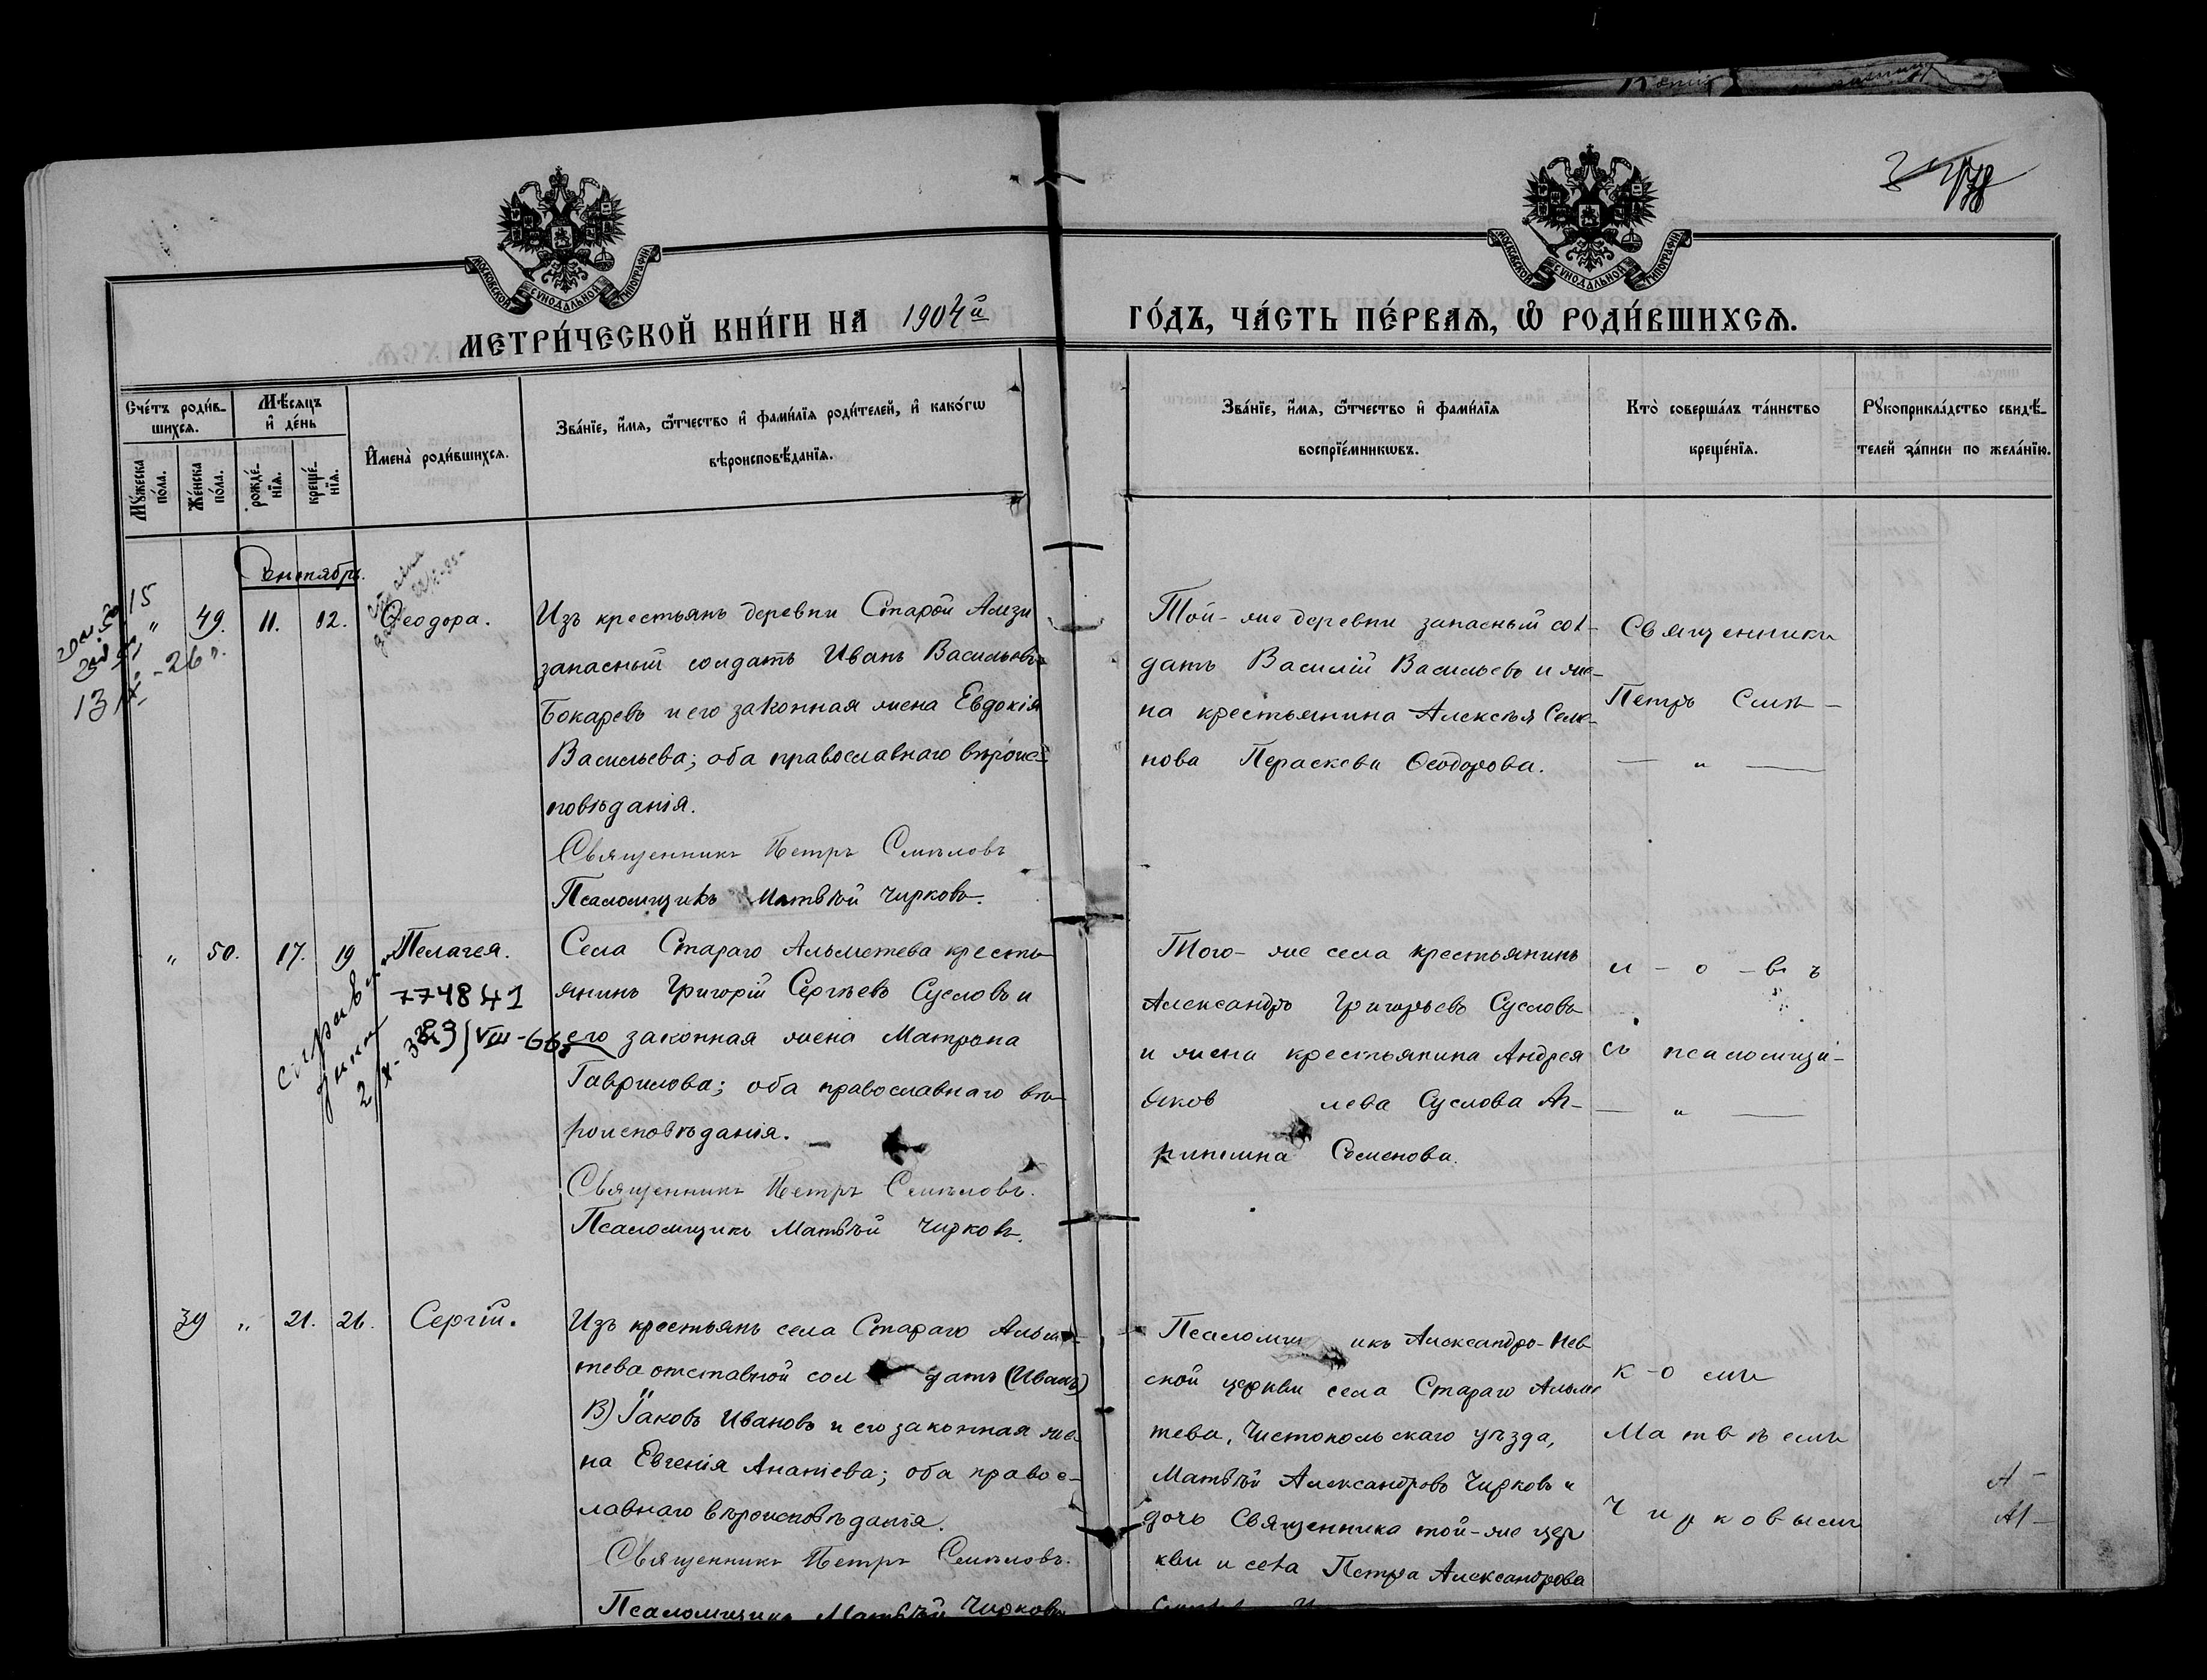 МОСКОВСКОЙ СѴНОДАЛЬНОЙ ТИПОГРАФІИ
МОСКОВСКОЙ СѴНОДАЛЬНОЙ ТИПОГРАФІИ
МЕТРИ́ЧЕСКОЙ КНИ́ГИ НА 1904й
ГО́ДЪ, ЧА́СТЬ ПЕ́РВАѦ, Ѡ҆ РОДИ́ВШИХСѦ.
Сче́тъ роди́в-
шихсѧ.
Мꙋ́жеска по́ла.
Же́нска по́ла.
Мѣ́сѧцъ
и҆ де́нь
рожде́-
нїѧ.
креще́-
нїѧ.
И҆мена̀ роди́вшихсѧ.
Зва́нїе, и҆́мѧ, ѻ҆́тчество и҆ фами́лїѧ роди́телей, и҆ како́гѡ
вѣроисповѣ́данїѧ.
Зва́нїе, и҆́мѧ, ѻ҆́тчество и҆ фами́лїѧ
воспрїе́мникѡвъ.
Кто̀ соверша́лъ та́инство
креще́нїѧ.
Рꙋкоприкла́дство свидѣ́-
телей за́писи по жела́нїю.
Сентябрь.
15
" 49. 11. 12. Ѳеодора.
Изъ крестьянъ деревни Старой Амзи
запасный солдатъ Иванъ Васильевъ
Бокаревъ и его законная жена Евдокія
Васильева; оба православнаго вѣроис-
повѣданія.
Священникъ Петръ Смѣловъ
Псаломщикъ Матвѣй Чирковъ.
Той-же деревни запасный сол-
датъ Василій Васильевъ и же-
на крестьянина Алексѣя Семе-
нова Параскева Ѳеодорова.
Священникъ
Петръ Смѣ-
— " —
" 50. 17. 19 Пелагея.
774841
Села Стараго Альметева кресть-
янинъ Григорій Сергѣевъ Сусловъ и
его законная жена Матрона
Гаврилова; оба православнаго вѣ-
роисповѣданія.
Священникъ Петръ Смѣловъ.
Псаломщикъ Матвѣй Чирковъ.
Того-же села крестьянинъ
Александръ Григорьевъ Сусловъ
и жена крестьянина Андрея
Яков лева Суслова Аг-
рипина Семенова.
л - о - въ
съ псаломщи-
— " —
39 " 21. 26. Сергій.
Изъ крестьянъ села Стараго Альме-
тева отставной сол датъ (Иванъ)
В) Іаковъ Ивановъ и его законная же-
на Евгенія Ананіева; оба правос-
лавнаго вѣроисповѣданія.
Священникъ Петръ Смѣловъ.
Псаломщикъ Матвѣй Чирковъ
Псаломщ икъ Александро-Нев-
ской церкви села Стараго Альме
тева, Чистопольскаго уѣзда,
Матвѣй Александровъ Чирковъ и
дочь Священника той-же цер
кви и села Петра Александрова
к-о мъ
Матвѣемъ
Чирковымъ